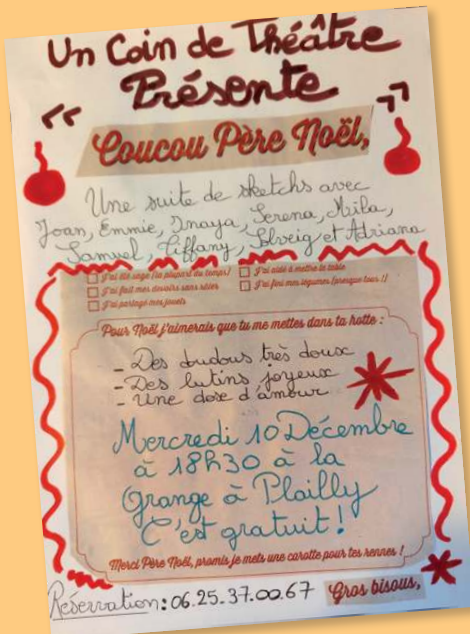 Un Coin de Théâtre
Présente
"
Coucou Père Noël,
"
Une suite de sketchs avec
Joan, Emmie, Inaya, Serena, Mila,
Samuel, Tiffany, Solveig et Adriana
J'ai été sage (la plupart du temps)
J'ai aidé à mettre la table
J'ai fait mes devoirs sans râler
J'ai fini mes légumes (presque tous !)
J'ai partagé mes jouets
Pour Noël j'aimerais que tu me mettes dans ta hotte :
- Des doudous très doux
- Des lutins joyeux
- Une dose d'amour
Mercredi 10 Décembre
à 18h30 à la
Grange à Plailly
C'est gratuit !
Merci Père Noël, promis je mets une carotte pour tes rennes !
Réservation : 06.25.37.00.67
Gros bisous,